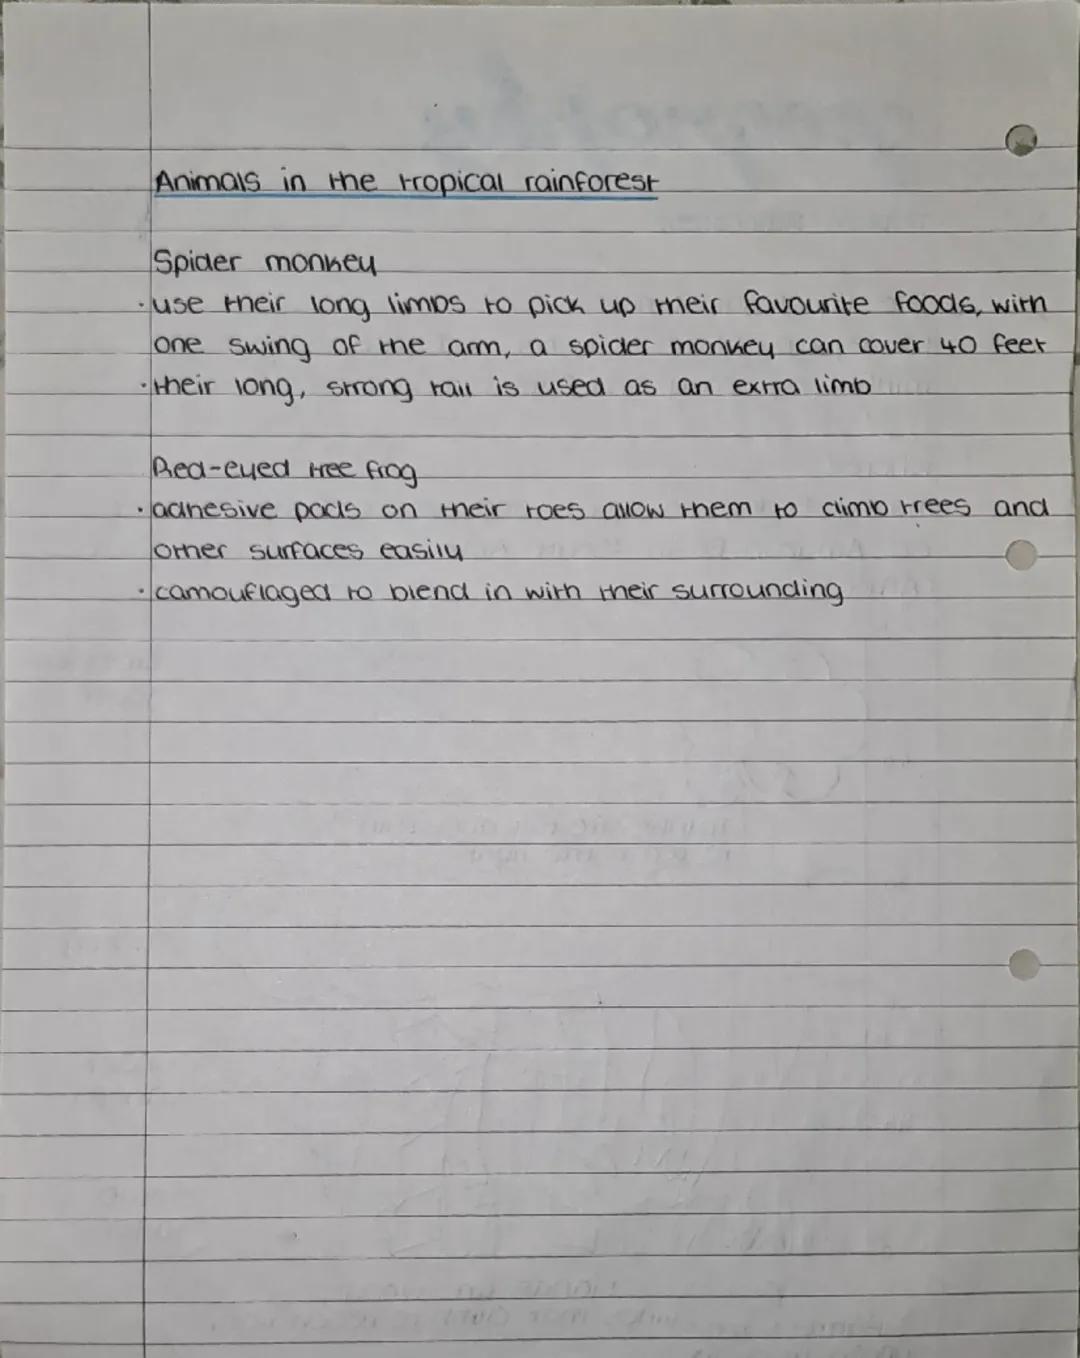 Animals in the tropical rainforest
Spider monkey
· use their long limbs to pick up their favourite foods, with
one swing of the arm, a spider monkey can cover 40 feet
· their long, strong tail is used as an extra limb
Red-eyed tree frog
· adhesive pads on their toes allow them to climb trees and
other surfaces easily
· camouflaged to blend in with their surrounding